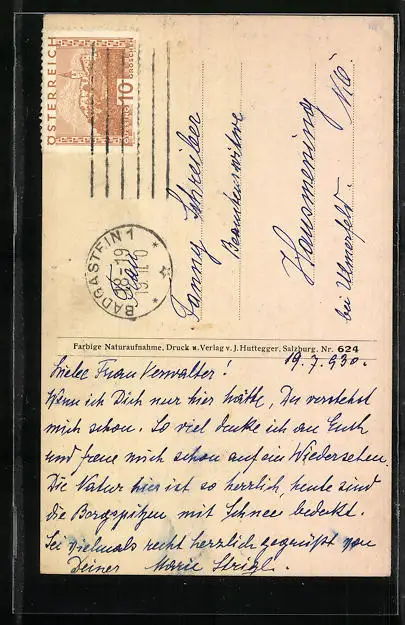 ÖSTERREICH
10
GROSCHEN
BADGASTEIN 1
18-19
Frau
Fanny Schreiber
Beamtenswitwe
Hausmening
bei Ulmerfeld. N.Ö.
Farbige Naturaufnahme, Druck u. Verlag v. J. Huttegger, Salzburg. Nr. 624
19.7.930.
Liebe Frau Verwalter!
Wenn ich Dich nur hier hätte, Du verstehst
mich schon. So viel denke ich an Euch
und freue mich schon auf ein Wiedersehen.
Die Natur hier ist so herrlich, heute sind
die Bergspitzen mit Schnee bedeckt.
Sei vielmals recht herzlich gegrüßt von
Deiner Marie